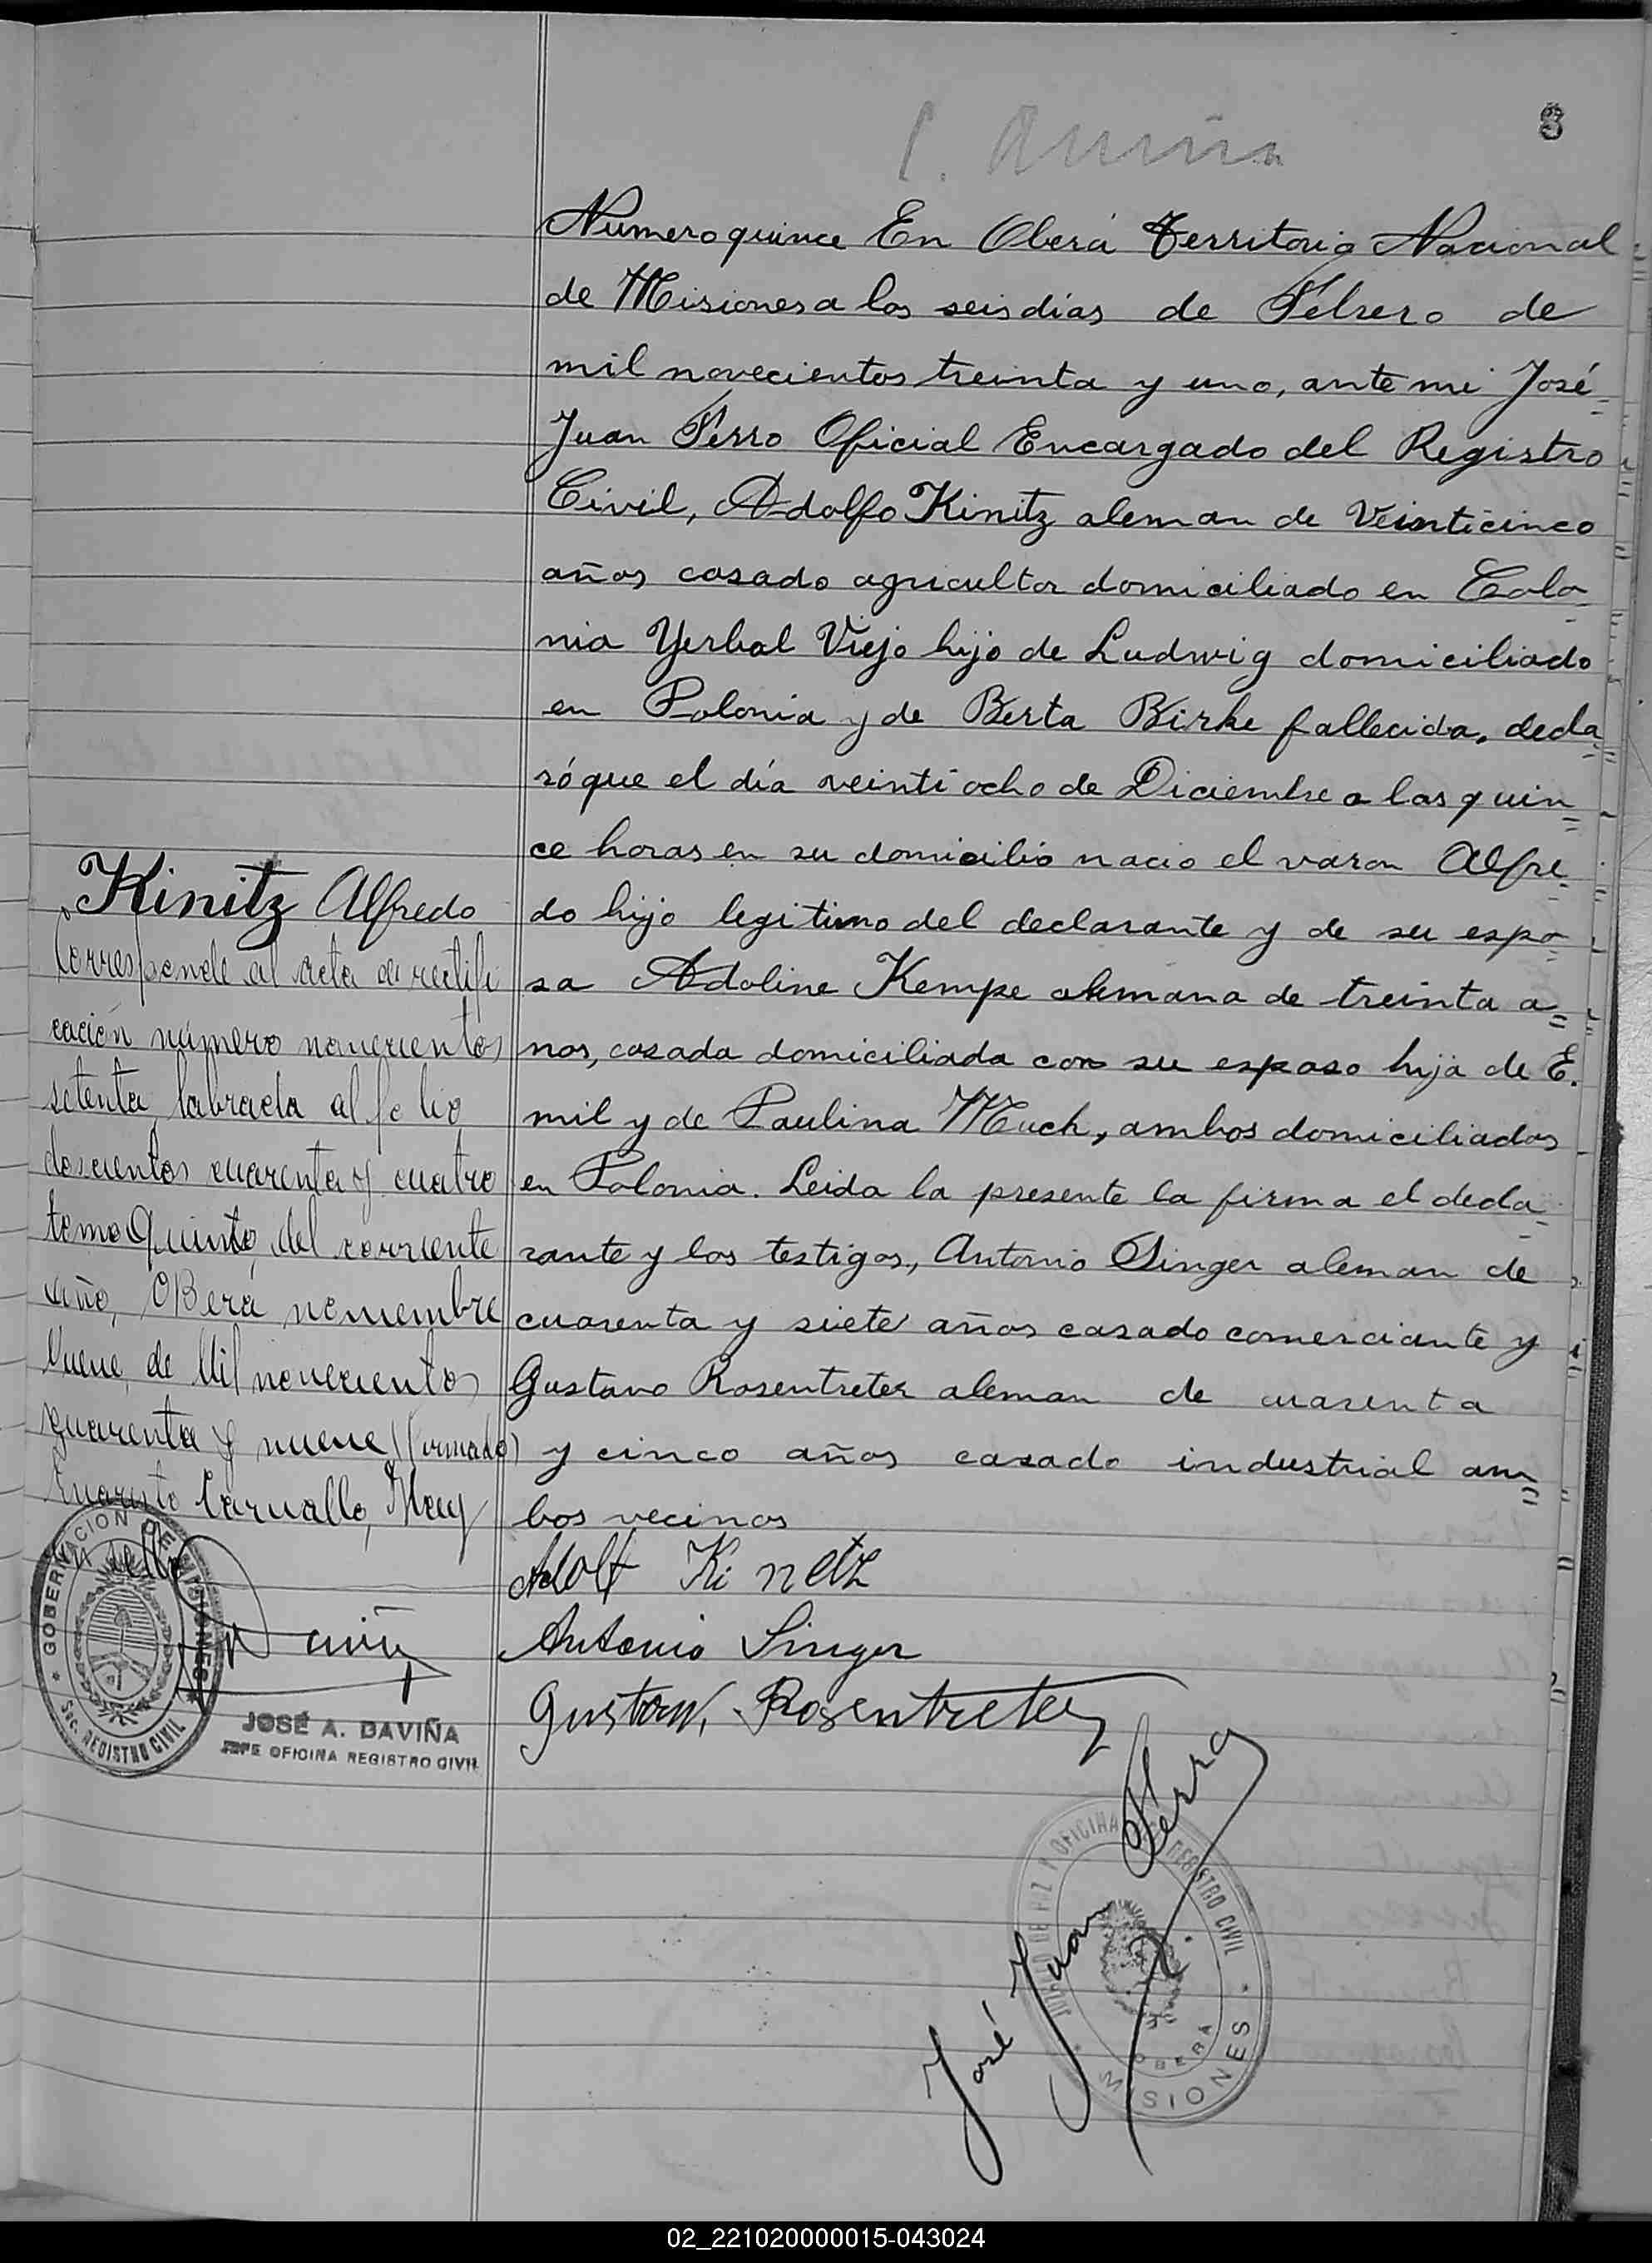 8
Numero quince En Oberá Territorio Nacional
de Misiones a los seis días de Febrero de
mil novecientos treinta y uno, ante mi José
Juan Ferro Oficial Encargado del Registro
Civil, Adolfo Kinitz aleman de Veinticinco
años casado agricultor domiciliado en Colo-
nia Yerbal Viejo hijo de Ludwig domiciliado
en Polonia y de Berta Birke fallecida, decla=
ró que el día veintiocho de Diciembre a las quin=
ce horas en su domicilio nacio el varon Alfre-
do hijo legitimo del declarante y de su espo-
sa Adoline Kempe alemana de treinta a=
nos, casada domiciliada con su esposo hija de E.
mil y de Paulina Much, ambos domiciliados
en Polonia. Leida la presente la firma el decla-
rante y los testigos, Antonio Singer aleman de
cuarenta y siete años casado comerciante y
Gustavo Rosentreter aleman de cuarenta
y cinco años casado industrial am=
bos vecinos
Adolf Kinetz
Antonio Singer
Gustaw. Rosentreter
José Juan Ferro
JUZGADO DE PAZ Y OFICINA DEL REGISTRO CIVIL
OBERÁ
MISIONES
Kinitz Alfredo
Corresponde al acta de rectifi
cación número novecientos
setenta, labrada al folio
doscientos cuarenta y cuatro
tomo Quinto, del corriente
año, OBerá noviembre
Nueve de Mil novecientos
quarenta y nueve (firmado)
Evaristo Carvallo, Hay
un sello
GOBERNACION DE MISIONES
Sec. REGISTRO CIVIL
JOSÉ A. DAVIÑA
JEFE OFICINA REGISTRO CIVIL
02_221020000015-043024